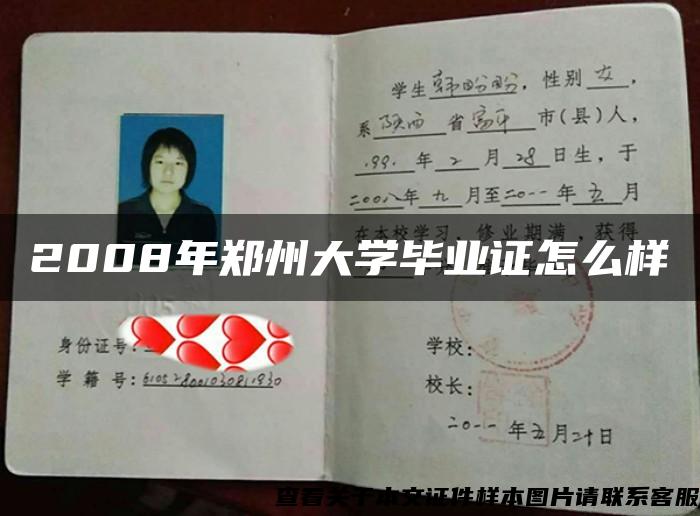 学生韩盼盼，性别女，
系陕西省富平市(县)人，
.991.年2月28日生，于
二00八年九月至二0一一年五月
在本校学习，修业期满，获得
2008年郑州大学毕业证怎么样
身份证号：
学籍号：610528001030811930
学校：
校长：
二0一一年五月二十日
查看关于本文证件样本图片请联系客服